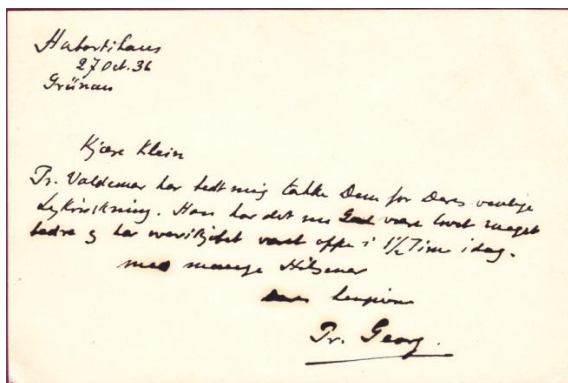 27 Oct. 36
Grünau
Kjære Klein
Pr. Valdemar har bedt mig takke Dem for Deres venlige
Lykønskning. Han har det nu Gud være lovet meget
bedre og har været oppe i 1/2 Time idag.
med mange Hilsener
Deres hengivne
Pr. Georg.